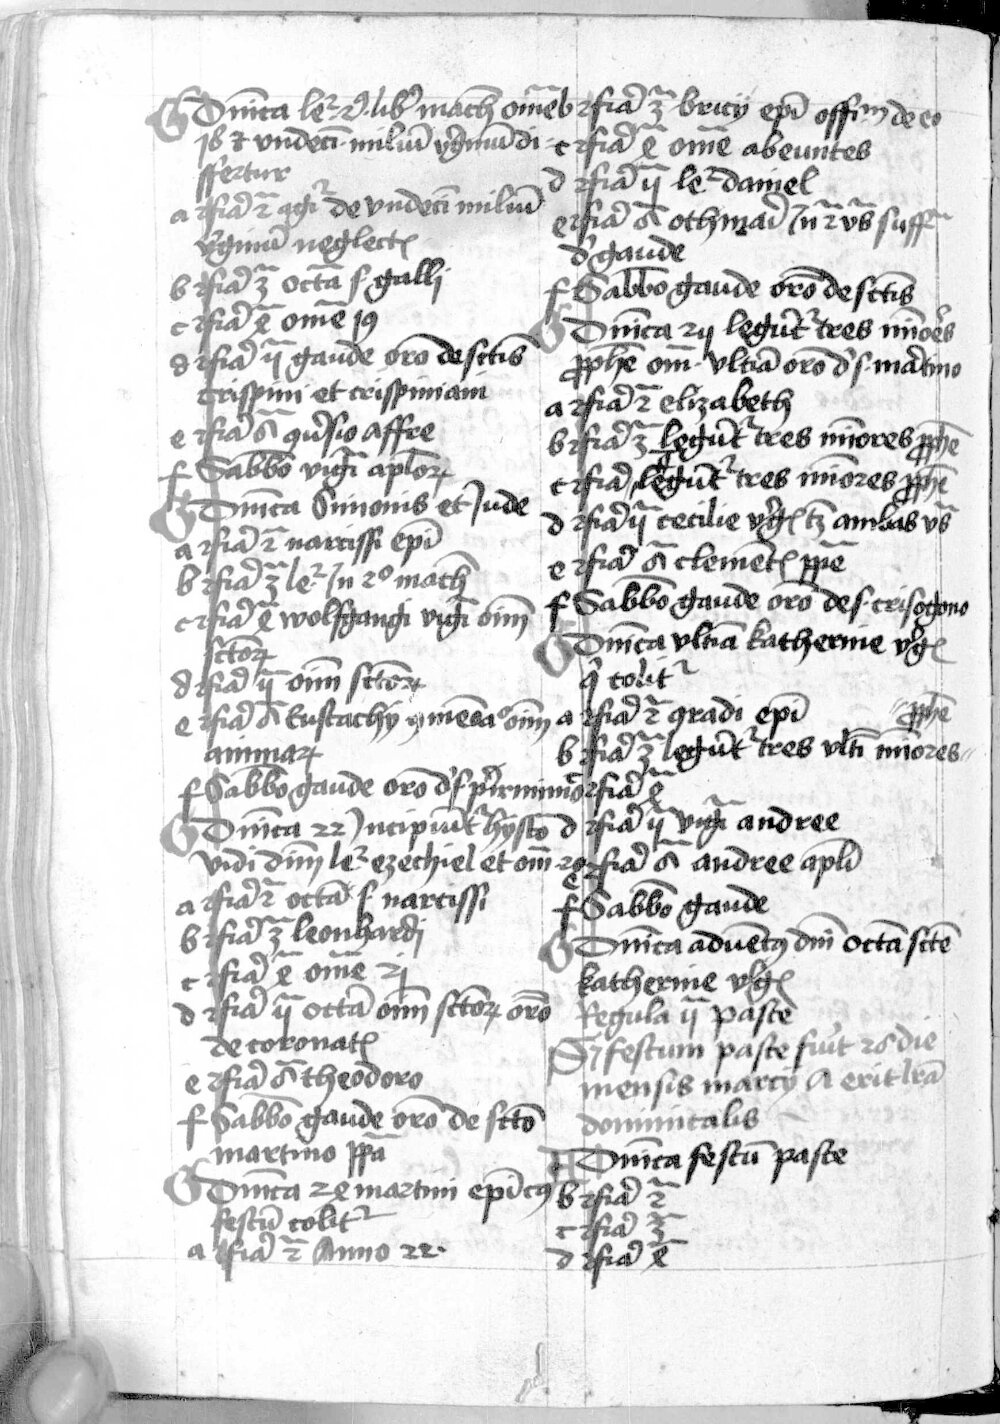 G Dnica le⁊ 2⁹ libꝰ mach om̄e
18 et vndeci miliū v̓ginū di
ffertur
a fia 2ᵃ de vndeci miliū
v̓ginū neglect
b fia 3ᵃ octa s galli
c fia 4ᵃ om̄e 19
d fia vᵃ gaude oro de sctis
crispini et crispiniani
e fia 6ᵃ affre
f Sabbo vigi aploꝝ
G Dnica Simonis et Jude
a fia 2ᵃ narcissi epi
b fia 3ᵃ le⁊ in 2º mach
c fia 4ᵃ wolfgangi vigi oim
sctoꝝ
d fia vᵃ oim sctoꝝ
e fia 6ᵃ Eustachy oim
animaꝝ
f Sabbo gaude oro d̓ s pirminio
G Dnica 22 Incipiūt hysto
vidi dnm le⁊ ezechiel et om 20
a fia 2ᵃ octa s narcissi
b fia 3ᵃ leonhardi
c fia 4ᵃ om̄e 21
d fia vᵃ octa oim sctoꝝ oro
de coronat
e fia 6ᵃ theodoro
f Sabbo gaude oro de scto
martino ppa
G Dnica 24 martini epi cꝰ
festū colit
a fia 2ᵃ Anno 22
b fia 3ᵃ bricij epi offm de eo
c fia 4ᵃ om̄e abeuntes
d fia vᵃ le⁊ daniel
e fia 6ᵃ othmari in 2 vs suff
d̓ gaude
f Sabbo gaude oro de sctis
G Dnica legūt tres minoes
pphe om vltia oro d̓ s martino
a fia 2ᵃ elizabeth
b fia 3ᵃ legūt tres minores pphe
c fia legūt tres minores pphe
d fia vᵃ cecilie v̓g ambas vs
e fia 6ᵃ clemet ppe
f Sabbo gaude oro de s crisogono
G Dnica vltia katherine v̓g
q̓ colit
a fia 2ᵃ 9radi epi pphe
b fia 3ᵃ legūt tres vlti minores
c fia 4ᵃ
d fia vᵃ vigi andree
e fia 6ᵃ andree apli
f Sabbo gaude
G Dnica aduetꝰ dni octa scte
katherine v̓g
Regula vᵃ pasce
Si festum pasce fuit 26 die
mensis marcij A erit lra
dominicalis
A Dnica festū pasce
b fia 2ᵃ
c fia 3ᵃ
d fia 4ᵃ